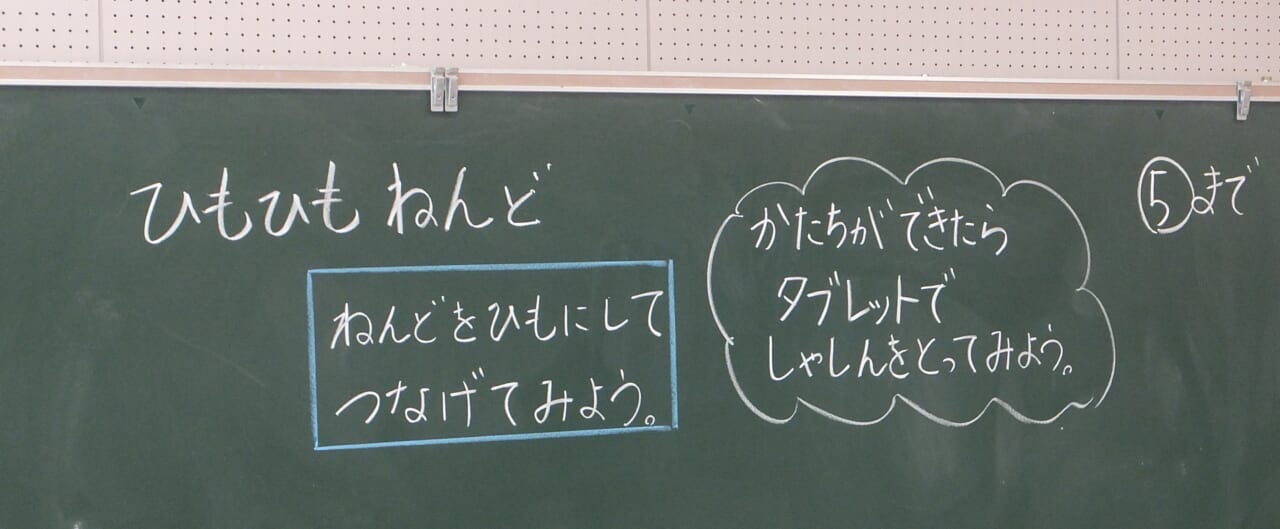 ひもひも ねんど
ねんどをひもにして
つなげてみよう。
かたちができたら
タブレットで
しゃしんをとってみよう。
⑤まで